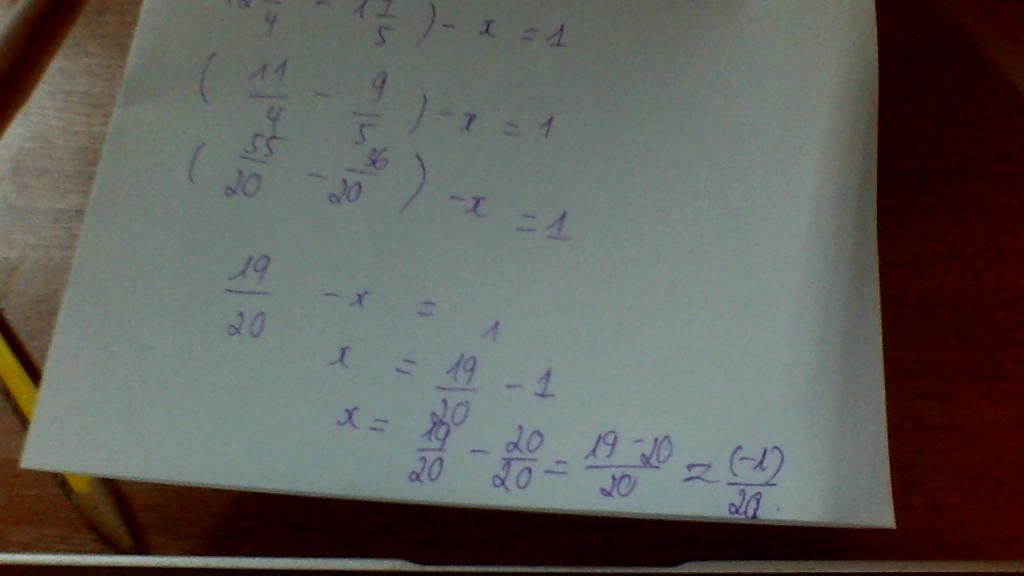 ) - x = 1
( 11/4 - 9/5 ) - x = 1
( 55/20 - 36/20 ) - x = 1
19/20 - x = 1
x = 19/20 - 1
x = 19/20 - 20/20 = 19-20/20 = (-1)/20.